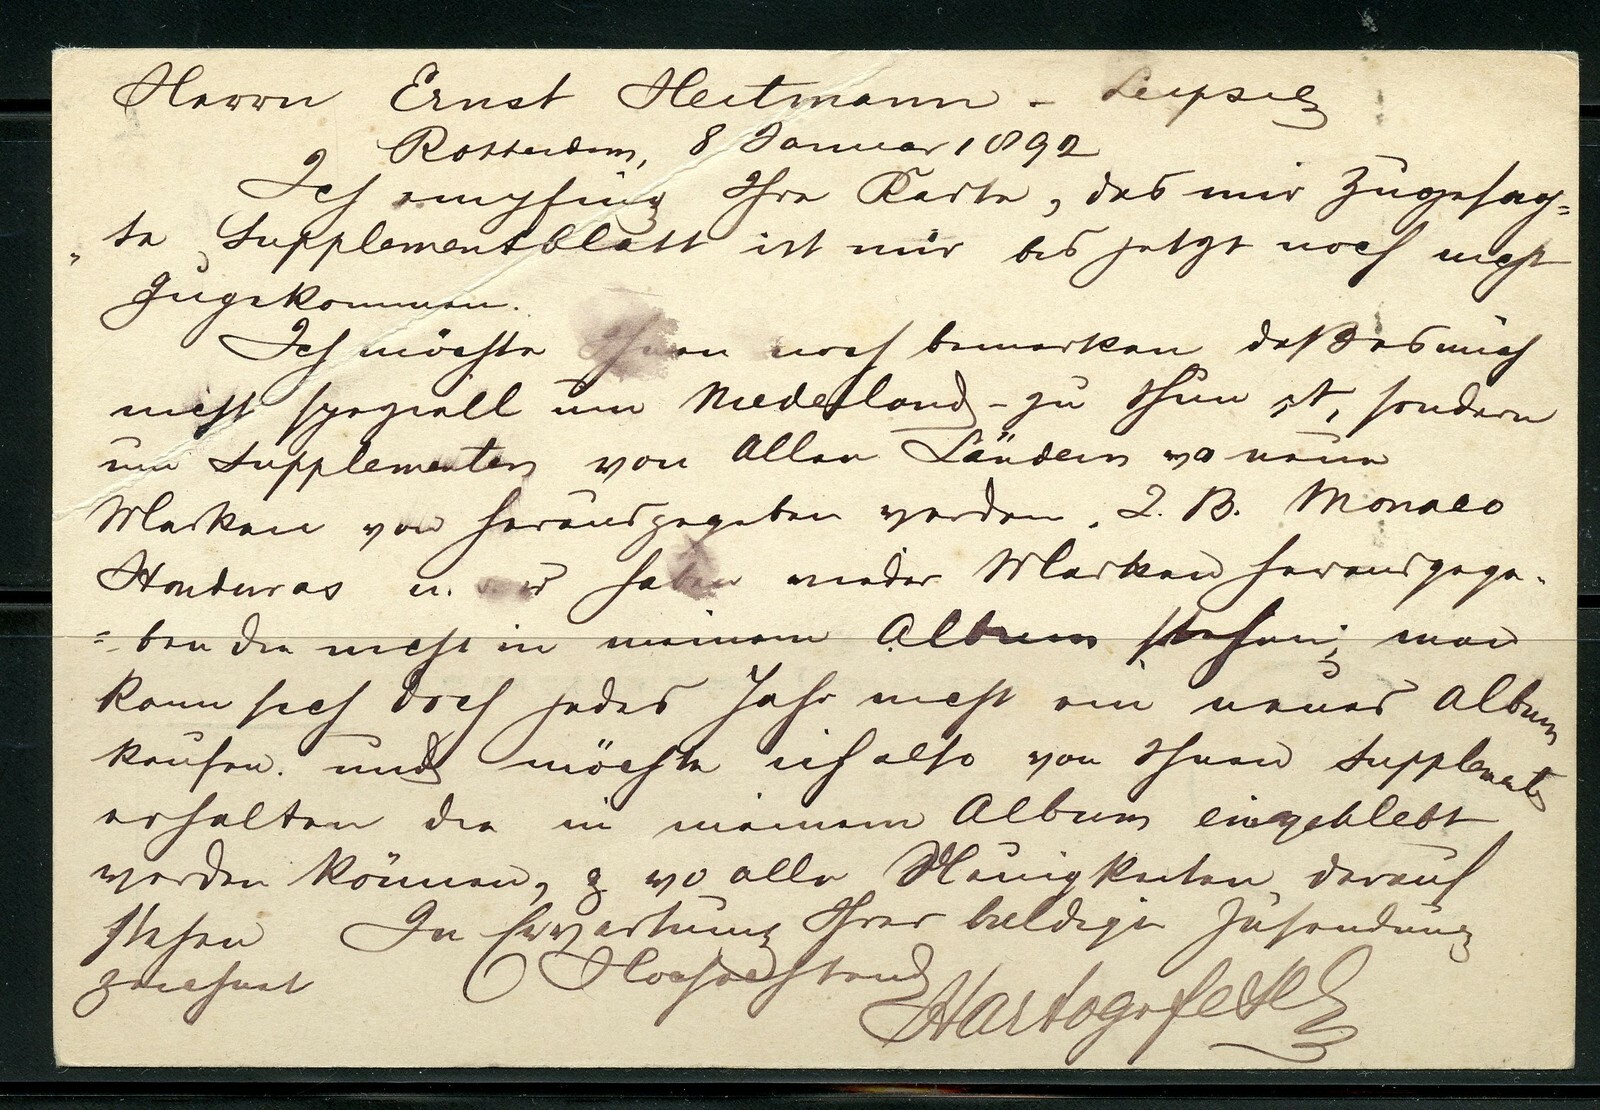 Herrn Ernst Heitmann - Leipzig
Rotterdam, 8 Januar 1892
Ich empfing Ihre Karte, das mir zugesag=
„ te Supplementblatt ist mir bis jetzt noch nicht
zugekommen.
Ich möchte Ihnen noch bemerken daß es mich
nicht speziell um Niederland - zu thun ist, sondern
um Supplementen von Allen Ländern wo neue
Marken von herausgegeben werden. Z. B. Monaco
Honduras u. haben wieder Marken herausgege-
=ben die nicht in meinem Album stehen; man
kann sich doch jedes Jahr nicht ein neues Album
kaufen. und möchte ich also von Ihnen Supplements
erhalten die in meinem Album eingeklebt
werden können, wo alle Neuigkeiten darauf
stehen In Erwartung Ihrer baldige Zusendung
zeichnet Hochachtend